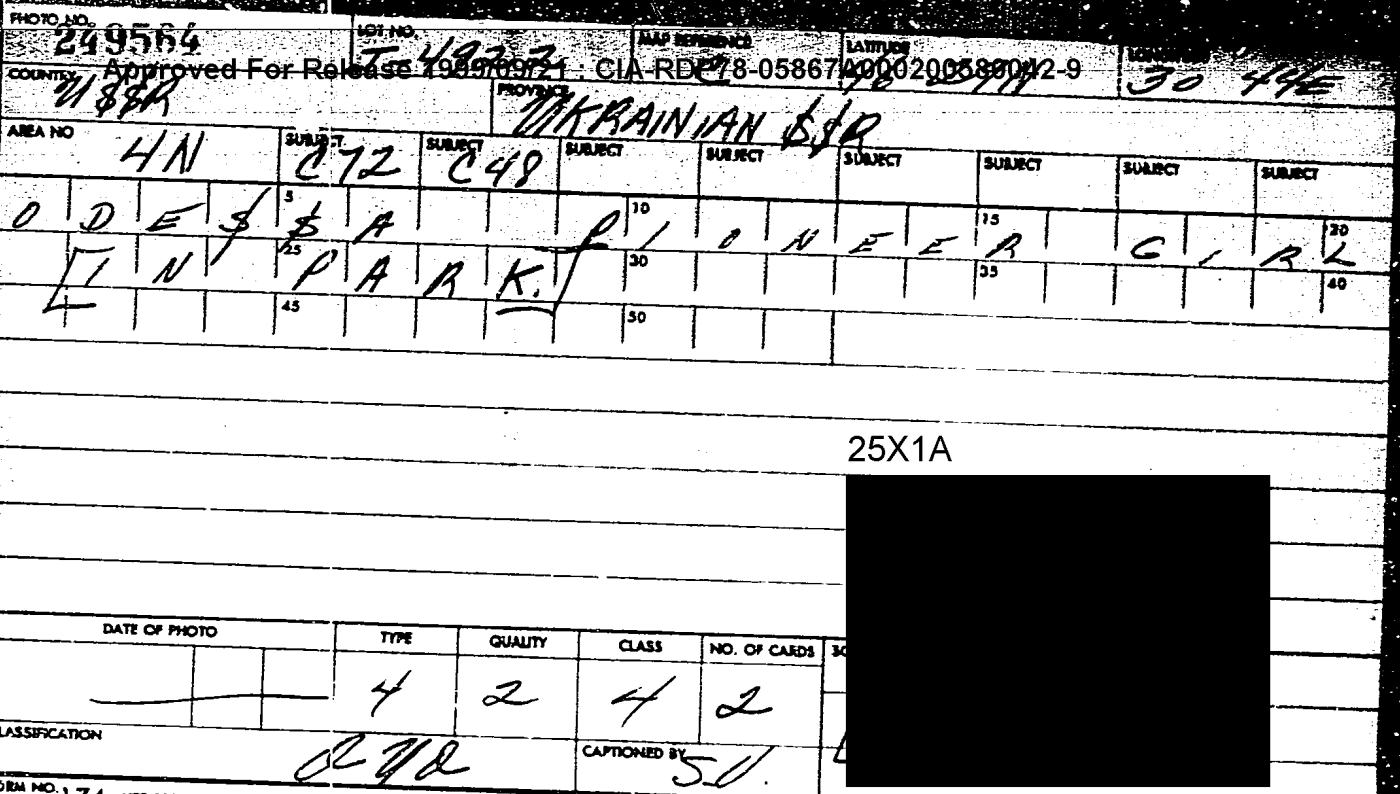 PHOTO NO. LOT NO. MAP REFERENCE LATITUDE
249564 T-4922 30 44E
Approved For Release 1999/09/21 : CIA-RDP78-05867A000200580042-9
COUNTRY U$$R PROVINCE UKRAINIAN $$R
AREA NO 4N SUBJECT C72 SUBJECT C48 SUBJECT SUBJECT SUBJECT SUBJECT SUBJECT SUBJECT
5 10 15 20
ODE$$A PIONEER GIRL
25 30 35 40
[IN PARK.]
45 50
25X1A
DATE OF PHOTO TYPE QUALITY CLASS NO. OF CARDS
4 2 4 2
LASSIFICATION CAPTIONED BY S.U.
ORM NO.